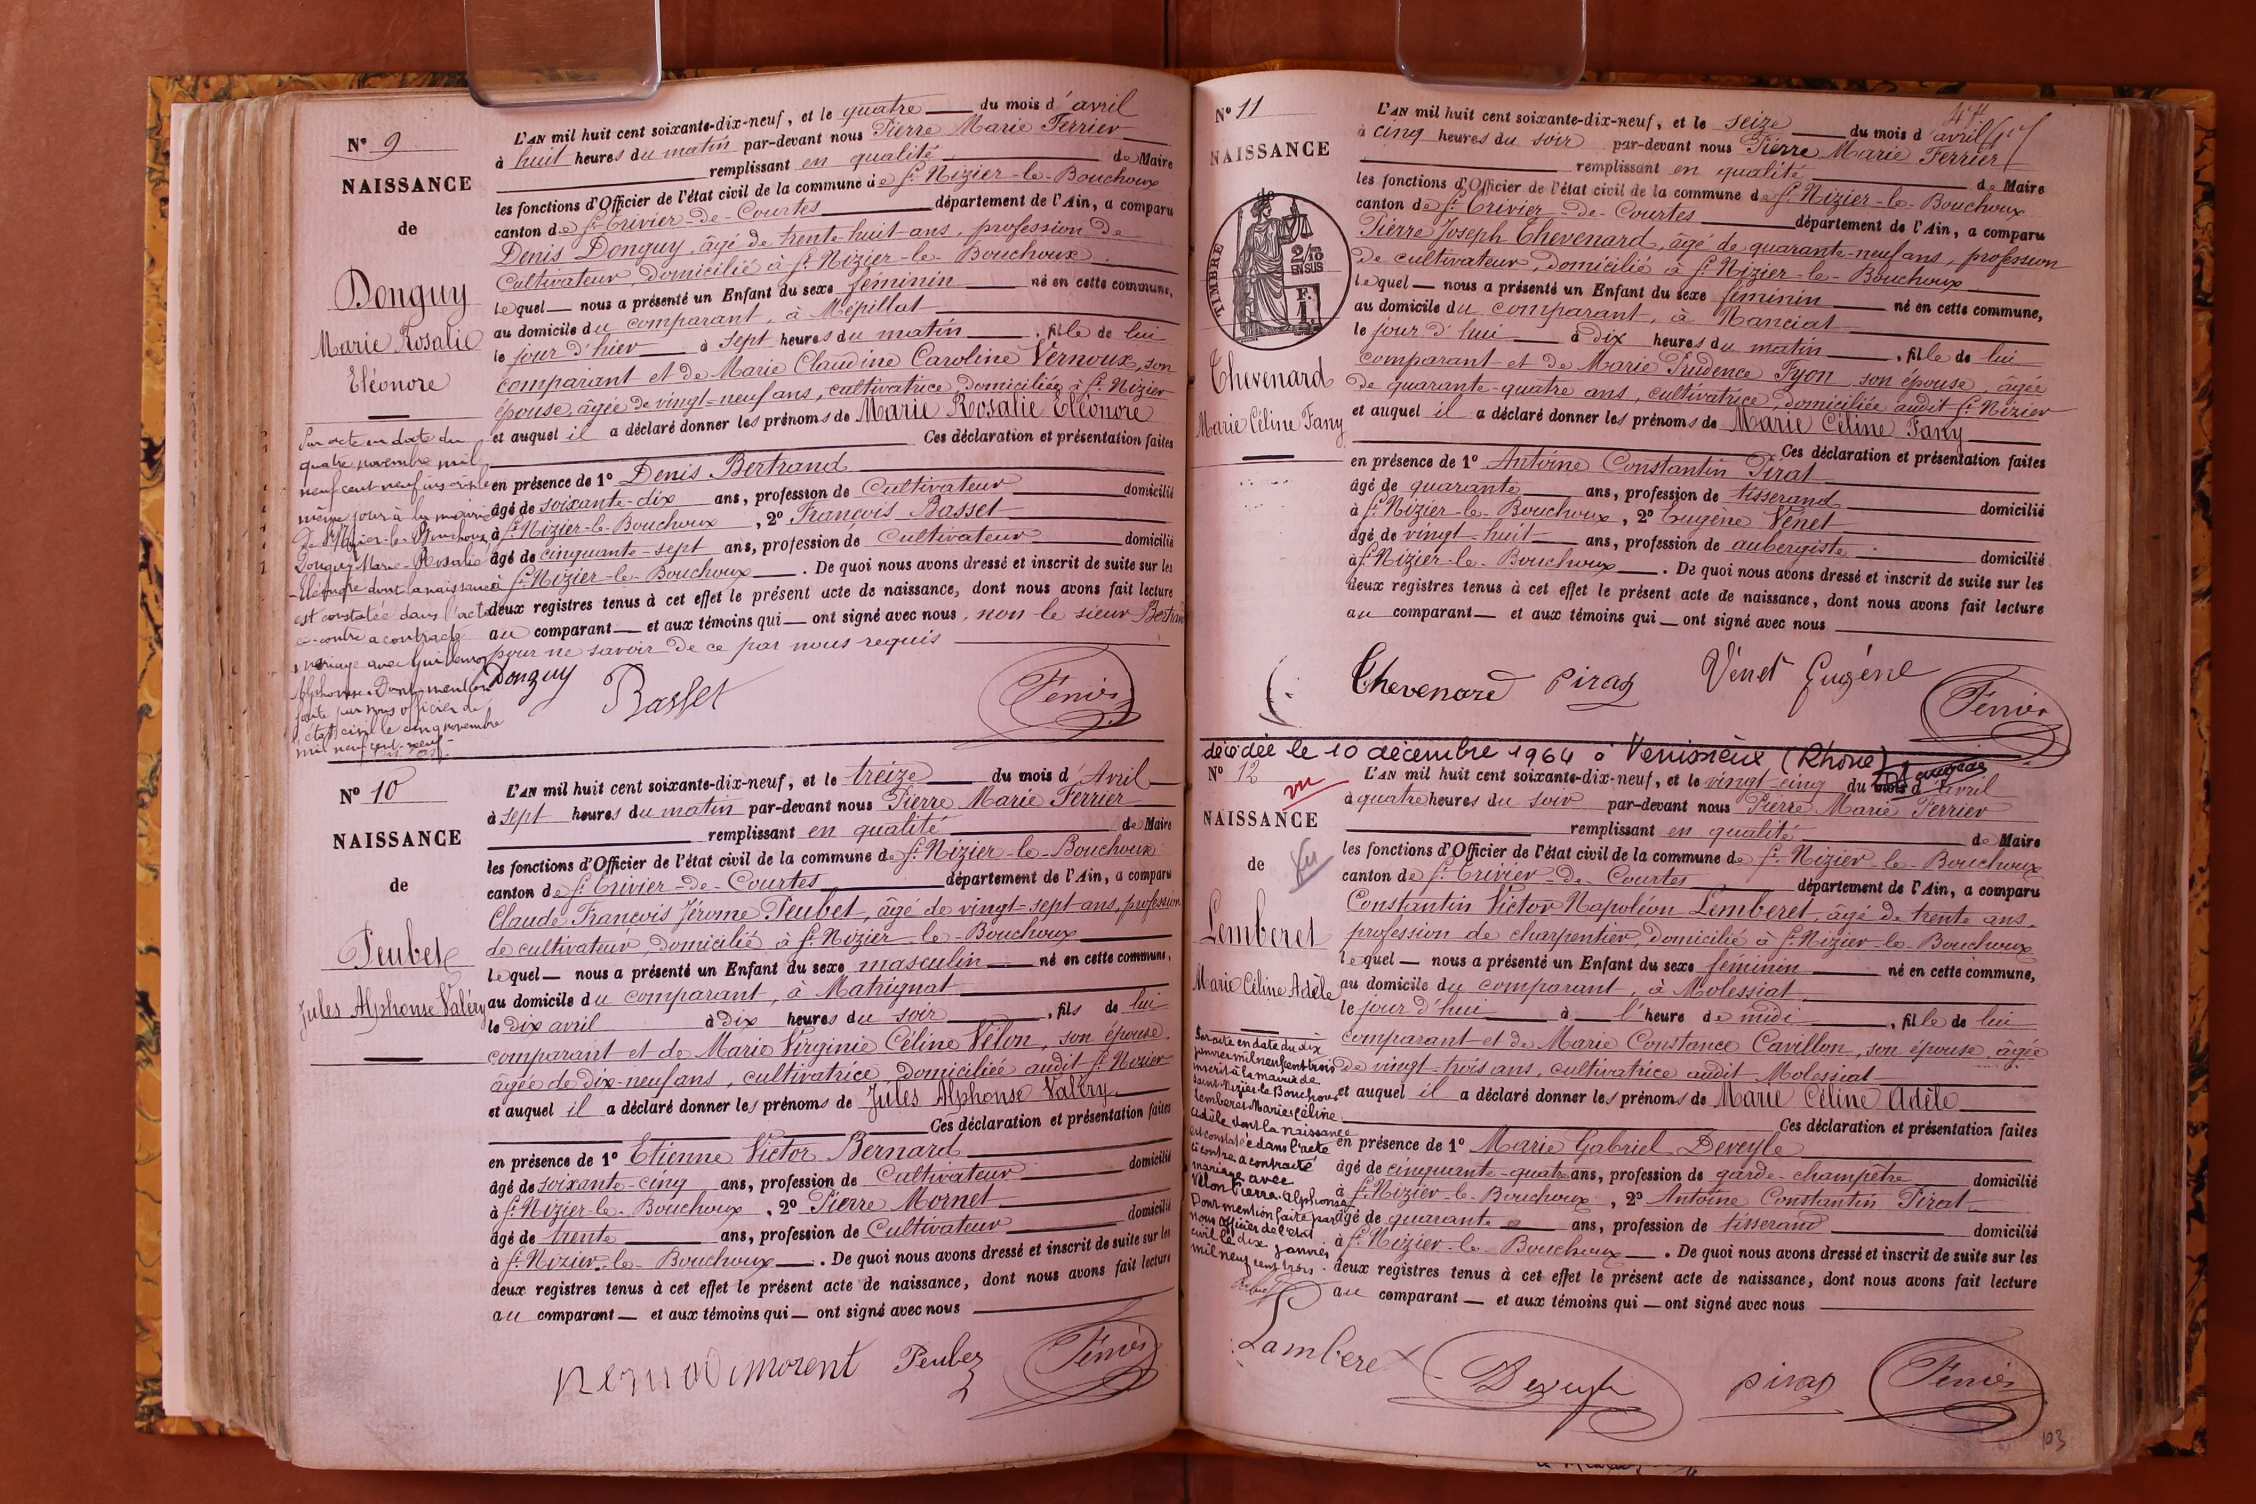 Nº 9
NAISSANCE
de
Donguy
Marie Rosalie
Eléonore
Sur acte en date du
quatre novembre mil
neuf cent neuf inscrit le
même jour à la mairie
de St Nizier-le-Bouchoux
Donguy Marie-Rosalie
-Eléonore dont la naissance
est constatée dans l'acte
ci-contre a contracté
mariage avec Guillemot
Alphonse. Dont mention
faite par nous officier de
l'état civil le cinq novembre
mil neuf cent-neuf.
L'AN mil huit cent soixante-dix-neuf, et le quatre du mois d'avril
à huit heures du matin par-devant nous Pierre Marie Ferrier
remplissant en qualité de Maire
les fonctions d'Officier de l'état civil de la commune de St Nizier-le-Bouchoux
canton de St Trivier-de-Courtes département de l'Ain, a comparu
Denis Donguy, âgé de trente-huit ans, profession de
Cultivateur, domicilié à St Nizier-le-Bouchoux
lequel nous a présenté un Enfant du sexe féminin né en cette commune,
au domicile du comparant, à Mépillat
le jour d'hier à sept heures du matin, fille de lui
comparant et de Marie Claudine Caroline Vernoux, son
épouse, âgée de vingt-neuf ans, cultivatrice, domiciliée à St Nizier
et auquel il a déclaré donner les prénoms de Marie Rosalie Eléonore
Ces déclaration et présentation faites
en présence de 1º Denis Bertrand
âgé de soixante-dix ans, profession de Cultivateur domicilié
à St Nizier-le-Bouchoux, 2º François Basset
âgé de cinquante-sept ans, profession de Cultivateur domicilié
à St Nizier-le-Bouchoux. De quoi nous avons dressé et inscrit de suite sur les
deux registres tenus à cet effet le présent acte de naissance, dont nous avons fait lecture
au comparant et aux témoins qui ont signé avec nous, non le sieur Bertrand
pour ne savoir de ce par nous requis
Donguy Basset Ferrier
Nº 10
NAISSANCE
de
Peubet
Jules Alphonse Valéry
L'AN mil huit cent soixante-dix-neuf, et le treize du mois d'Avril
à sept heures du matin par-devant nous Pierre Marie Ferrier
remplissant en qualité de Maire
les fonctions d'Officier de l'état civil de la commune de St Nizier-le-Bouchoux
canton de St Trivier-de-Courtes département de l'Ain, a comparu
Claude François Jérome Peubet, âgé de vingt-sept ans, profession
de cultivateur, domicilié à St Nizier-le-Bouchoux
lequel nous a présenté un Enfant du sexe masculin né en cette commune,
au domicile du comparant, à Matrignat
le dix avril à dix heures du soir, fils de lui
comparant et de Marie Virginie Céline Vélon, son épouse,
âgée de dix-neuf ans, cultivatrice, domiciliée audit St Nizier
et auquel il a déclaré donner les prénoms de Jules Alphonse Valéry
Ces déclaration et présentation faites
en présence de 1º Etienne Victor Bernard
âgé de soixante-cinq ans, profession de Cultivateur domicilié
à St Nizier-le-Bouchoux, 2º Pierre Mornet
âgé de trente ans, profession de Cultivateur domicilié
à St Nizier-le-Bouchoux. De quoi nous avons dressé et inscrit de suite sur les
deux registres tenus à cet effet le présent acte de naissance, dont nous avons fait lecture
au comparant et aux témoins qui ont signé avec nous
morent Peubez Ferrier
Nº 11
NAISSANCE
de
TIMBRE
2/10
EN SUS
F.
1.
Thevenard
Marie Céline Fany
L'AN mil huit cent soixante-dix-neuf, et le seize du mois d'avril
à cinq heures du soir par-devant nous Pierre Marie Ferrier
remplissant en qualité de Maire
les fonctions d'Officier de l'état civil de la commune de St Nizier-le-Bouchoux
canton de St Trivier-de-Courtes département de l'Ain, a comparu
Pierre Joseph Thevenard, âgé de quarante-neuf ans, profession
de cultivateur, domicilié à St Nizier-le-Bouchoux
lequel nous a présenté un Enfant du sexe féminin né en cette commune,
au domicile du comparant, à Nanciat
le jour d'hui à dix heures du matin, fille de lui
comparant et de Marie Prudence Fyon, son épouse, âgée
de quarante-quatre ans, cultivatrice, domiciliée audit St Nizier
et auquel il a déclaré donner les prénoms de Marie Céline Fany
Ces déclaration et présentation faites
en présence de 1º Antoine Constantin Pirat
âgé de quarante ans, profession de tisserand domicilié
à St Nizier-le-Bouchoux, 2º Eugène Vénet
âgé de vingt-huit ans, profession de aubergiste domicilié
à St Nizier-le-Bouchoux. De quoi nous avons dressé et inscrit de suite sur les
deux registres tenus à cet effet le présent acte de naissance, dont nous avons fait lecture
au comparant et aux témoins qui ont signé avec nous
Thevenard Pirat Vénet Eugène Ferrier
décédée le 10 décembre 1964 à Venissieux (Rhône)
Nº 12
vu
NAISSANCE
de
Vu
Lemberet
Marie Céline Adèle
Sur acte en date du dix
janvier mil neuf cent trois
inscrit à la mairie de
Saint-Nizier-le-Bouchoux
Lemberet Marie Céline
Adèle dont la naissance
est constatée dans l'acte
ci contre a contracté
mariage avec
Vélon Pierre Alphonse
Pour mention faite par
nous officier de l'état
civil le dix janvier
mil neuf cent trois.
L'AN mil huit cent soixante-dix-neuf, et le vingt-cinq du mois d'avril
à quatre heures du soir par-devant nous Pierre Marie Ferrier
remplissant en qualité de Maire
les fonctions d'Officier de l'état civil de la commune de St Nizier-le-Bouchoux
canton de St Trivier-de-Courtes département de l'Ain, a comparu
Constantin Victor Napoléon Lemberet, âgé de trente ans,
profession de charpentier, domicilié à St Nizier-le-Bouchoux
lequel nous a présenté un Enfant du sexe féminin né en cette commune,
au domicile du comparant, à Molessiat
le jour d'hui à l'heure de midi, fille de lui
comparant et de Marie Constance Cavillon, son épouse, âgée
de vingt-trois ans, cultivatrice audit Molessiat
et auquel il a déclaré donner les prénoms de Marie Céline Adèle
Ces déclaration et présentation faites
en présence de 1º Marie Gabriel Deveyle
âgé de cinquante-quatre ans, profession de garde-champêtre domicilié
à St Nizier-le-Bouchoux, 2º Antoine Constantin Pirat
âgé de quarante ans, profession de tisserand domicilié
à St Nizier-le-Bouchoux. De quoi nous avons dressé et inscrit de suite sur les
deux registres tenus à cet effet le présent acte de naissance, dont nous avons fait lecture
au comparant et aux témoins qui ont signé avec nous
Lamberet Deveyle pirat Ferrier
103